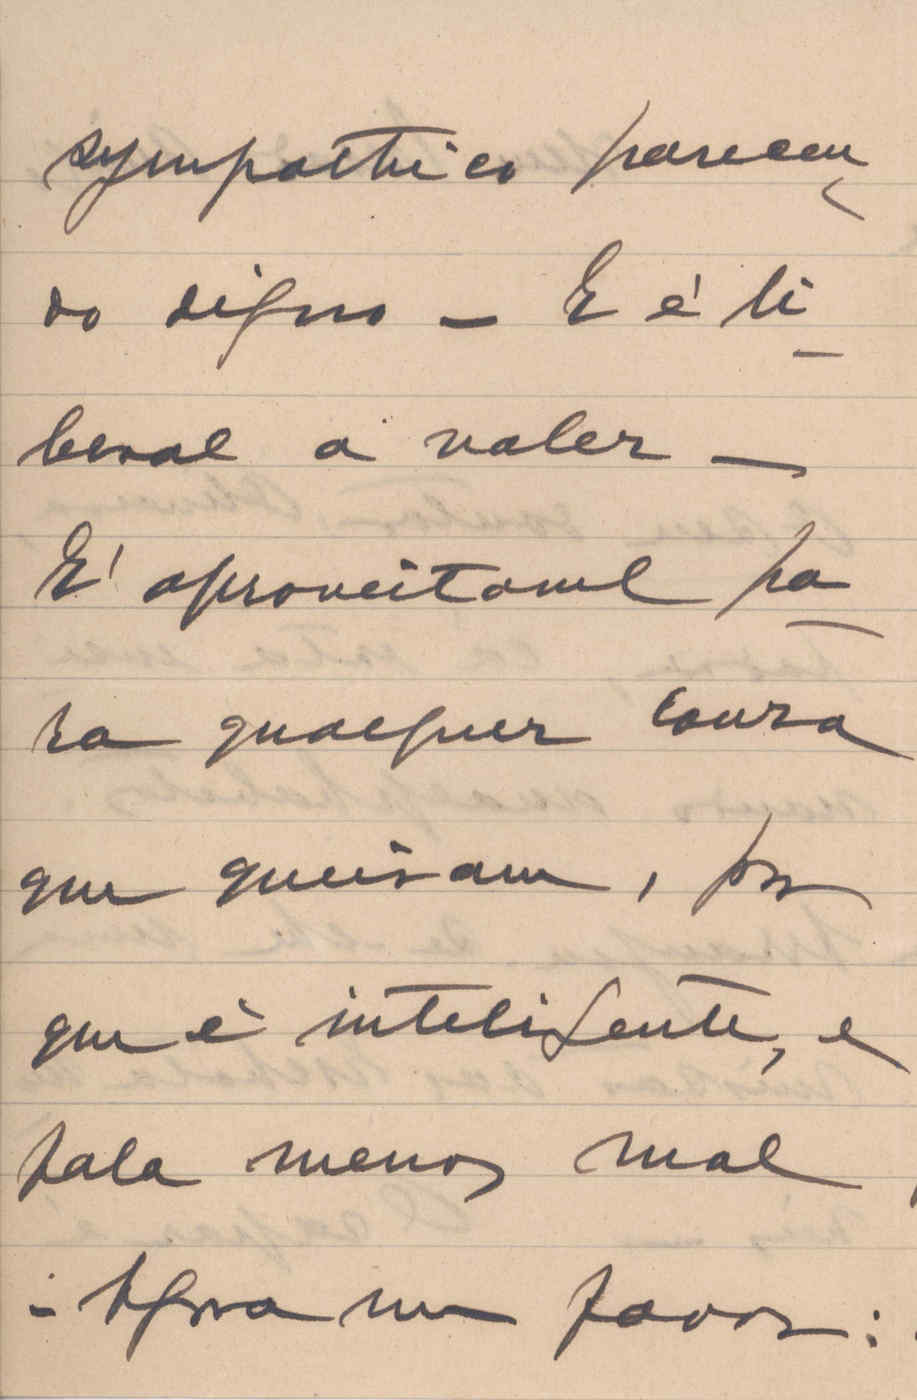 sympathico parecen
do digno — E é li
beral a valer —
E' aproveitavel pa
ra qualquer couza
que queiram, por
que é inteligente, e
fala menos mal,
- Agora um favor: